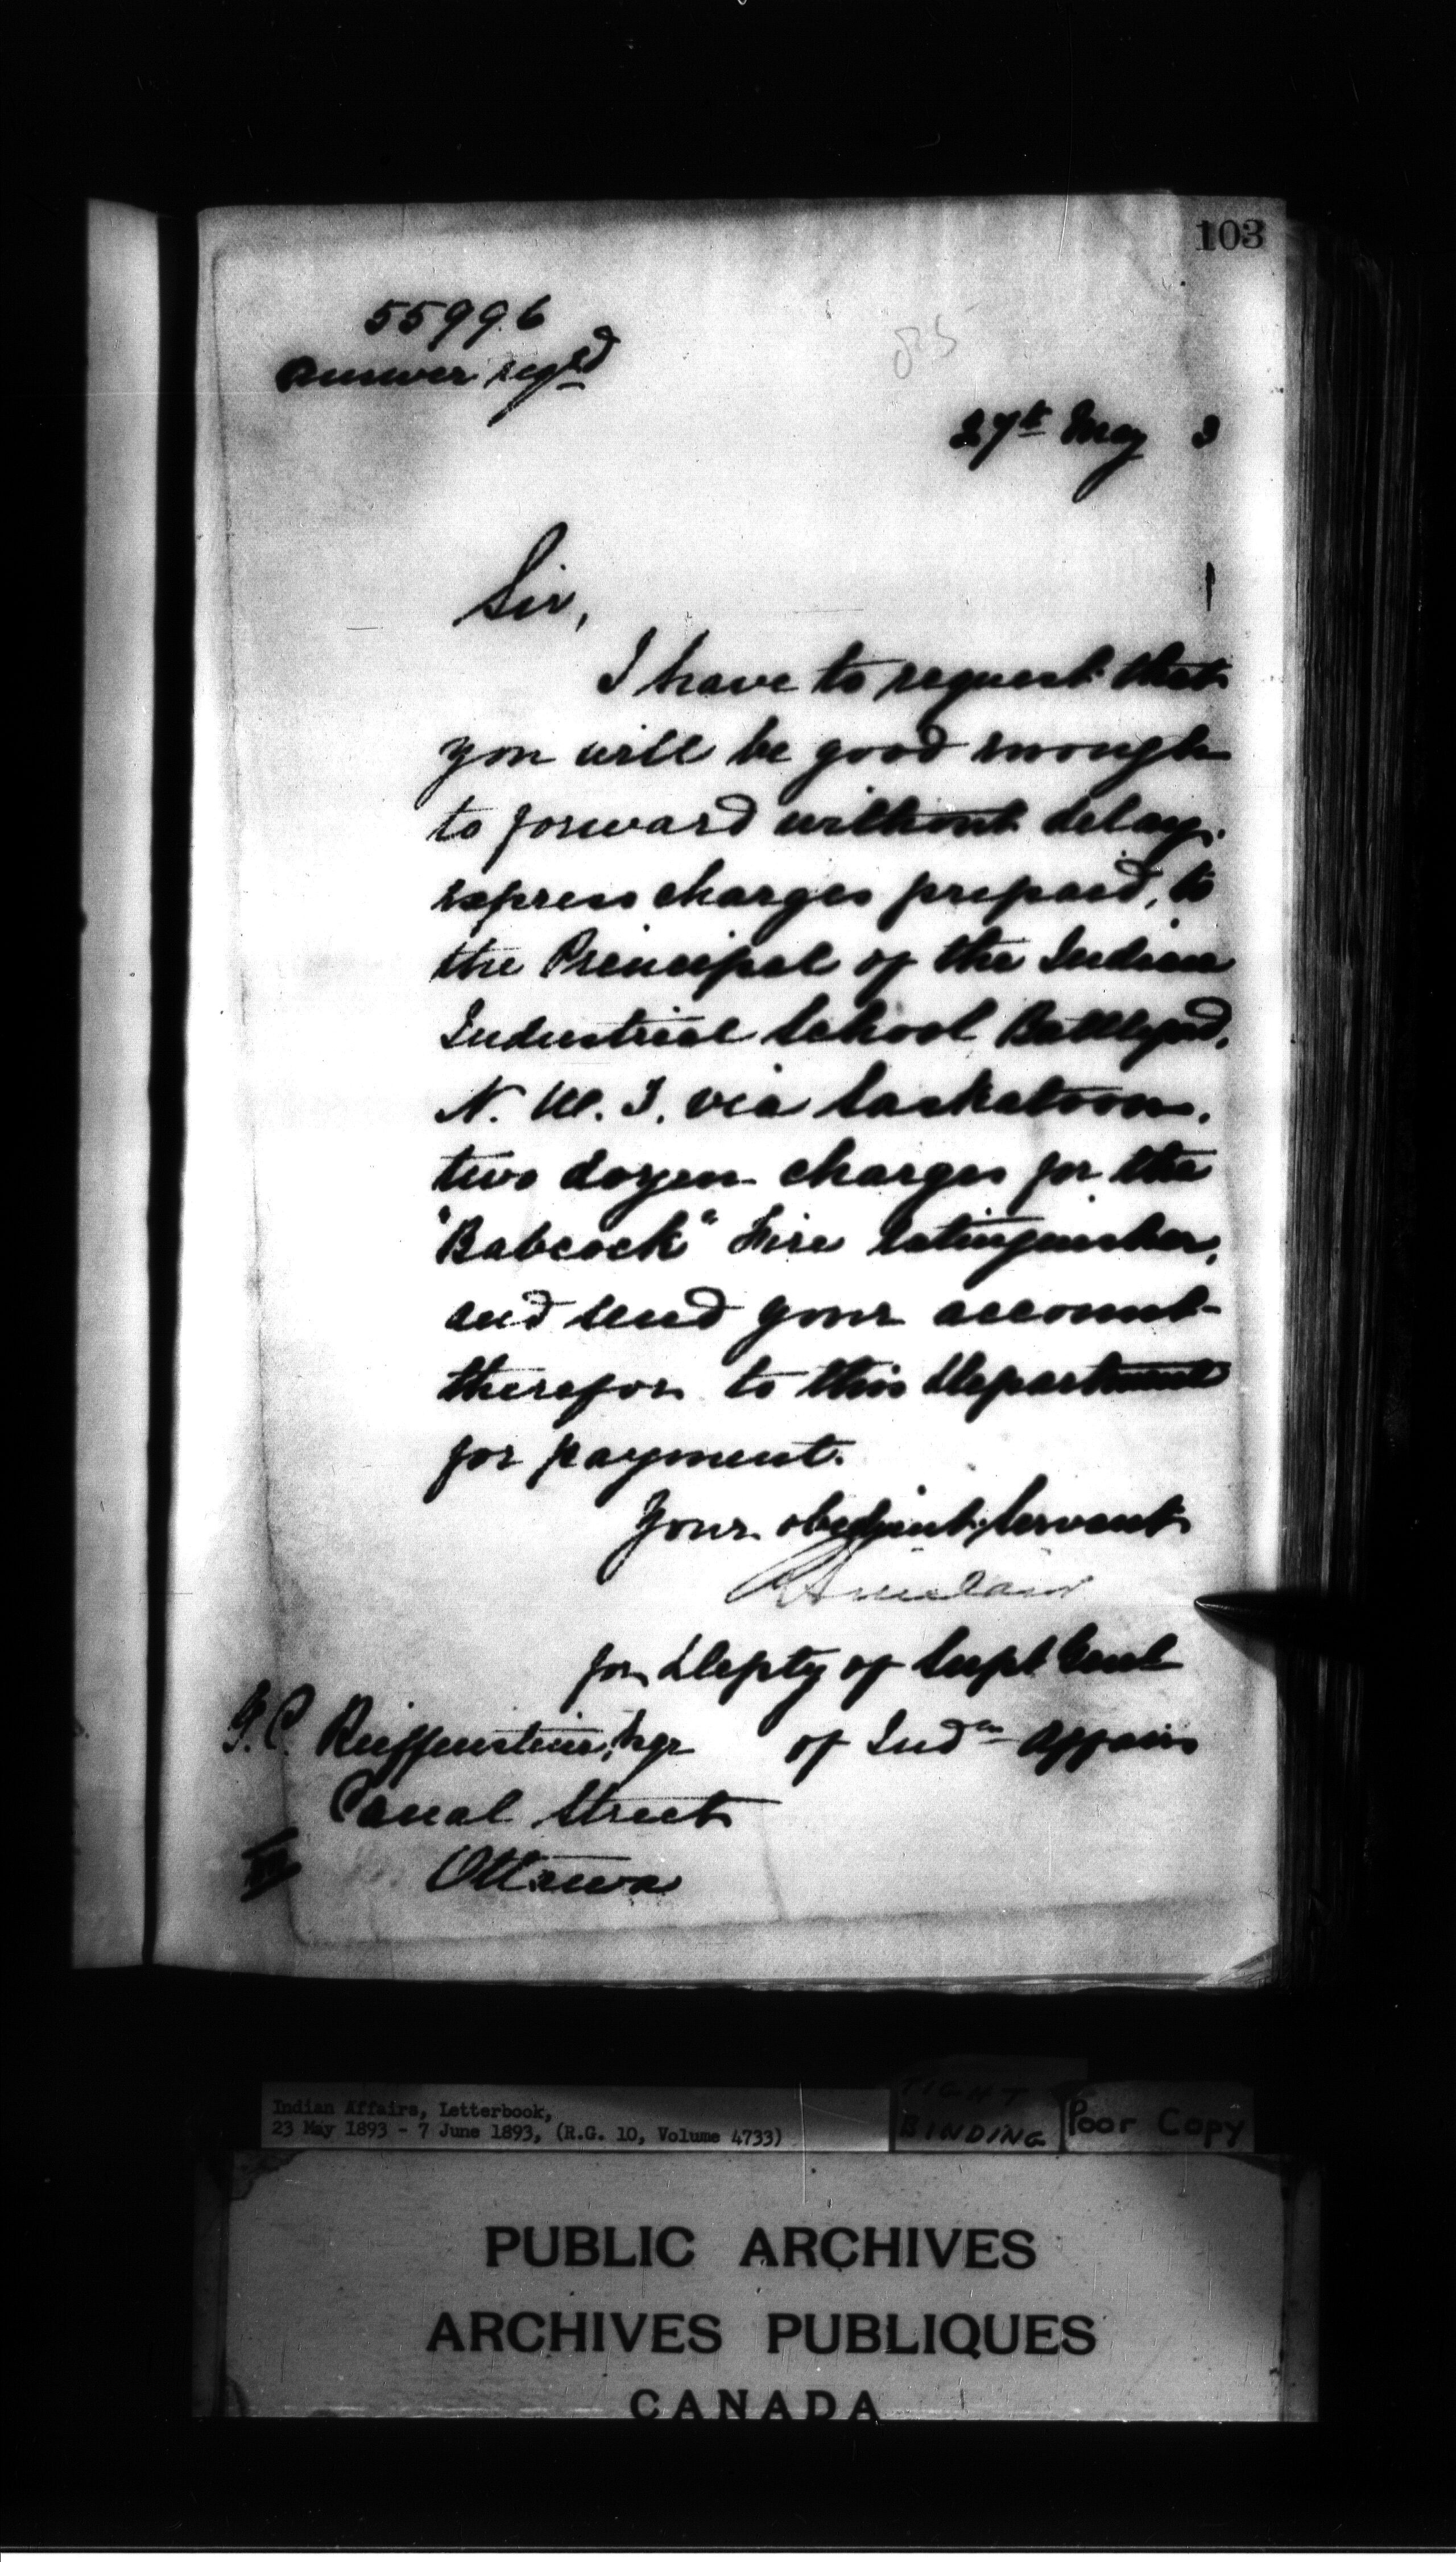 103
55996
Answer reqrd
85
27th May 3
Sir,
I have to request that
you will be good enough
to forward without delay,
express charges prepaid, to
the Principal of the Indian
Industrial School Battleford,
N. W. T. via Saskatoon,
two dozen charges for the
"Babcock" Fire Extinguisher,
and send your account
therefor to this Department
for payment.
Your obedient Servant
R Sinclair
for Depty of Supt Genl
of Indn Affairs
Reiffenstein, Esqr
Canal Street
Ottawa
Indian Affairs, Letterbook,
23 May 1893 - 7 June 1893, (R.G. 10, Volume 4733)
TIGHT
BINDING
Poor Copy
PUBLIC ARCHIVES
ARCHIVES PUBLIQUES
CANADA